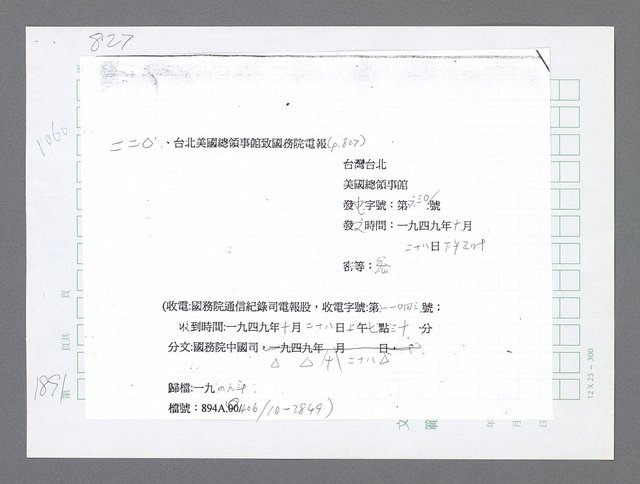 827
1060
二二〇、台北美國總領事館致國務院電報(p.827)
台灣台北
美國總領事館
發电字號：第二三〇號
發文時間：一九四九年十月
二十八日下午五时
密等：密
(收電:國務院通信紀錄司電報股，收電字號:第一一〇四三號；
收到時間:一九四九年十月二十八日上午七點三十分
分文:國務院中國司，一九四九年 月 日，
十 二十八
歸檔:一九四九年
檔號：894A.00/10-2849)
頁
頁共
第
1891
文 範
年 月 日
12 X 25 = 300